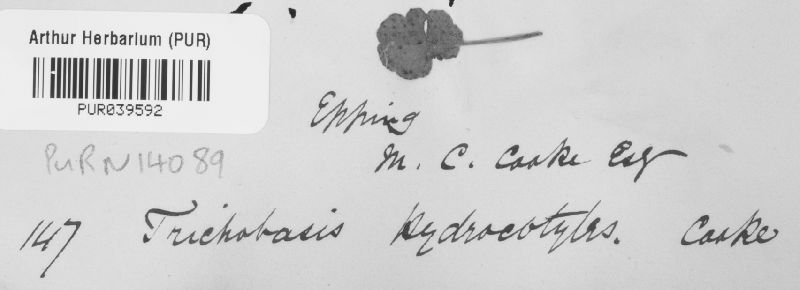 Arthur Herbarium (PUR)
PUR039592
PURN14089
Epping
M. C. Cooke Esqr
147 Trichobasis Hydrocotyles. Cooke